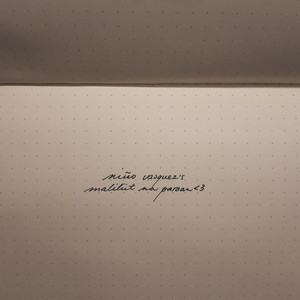 niño vasquez's
maliliit na paraan <3